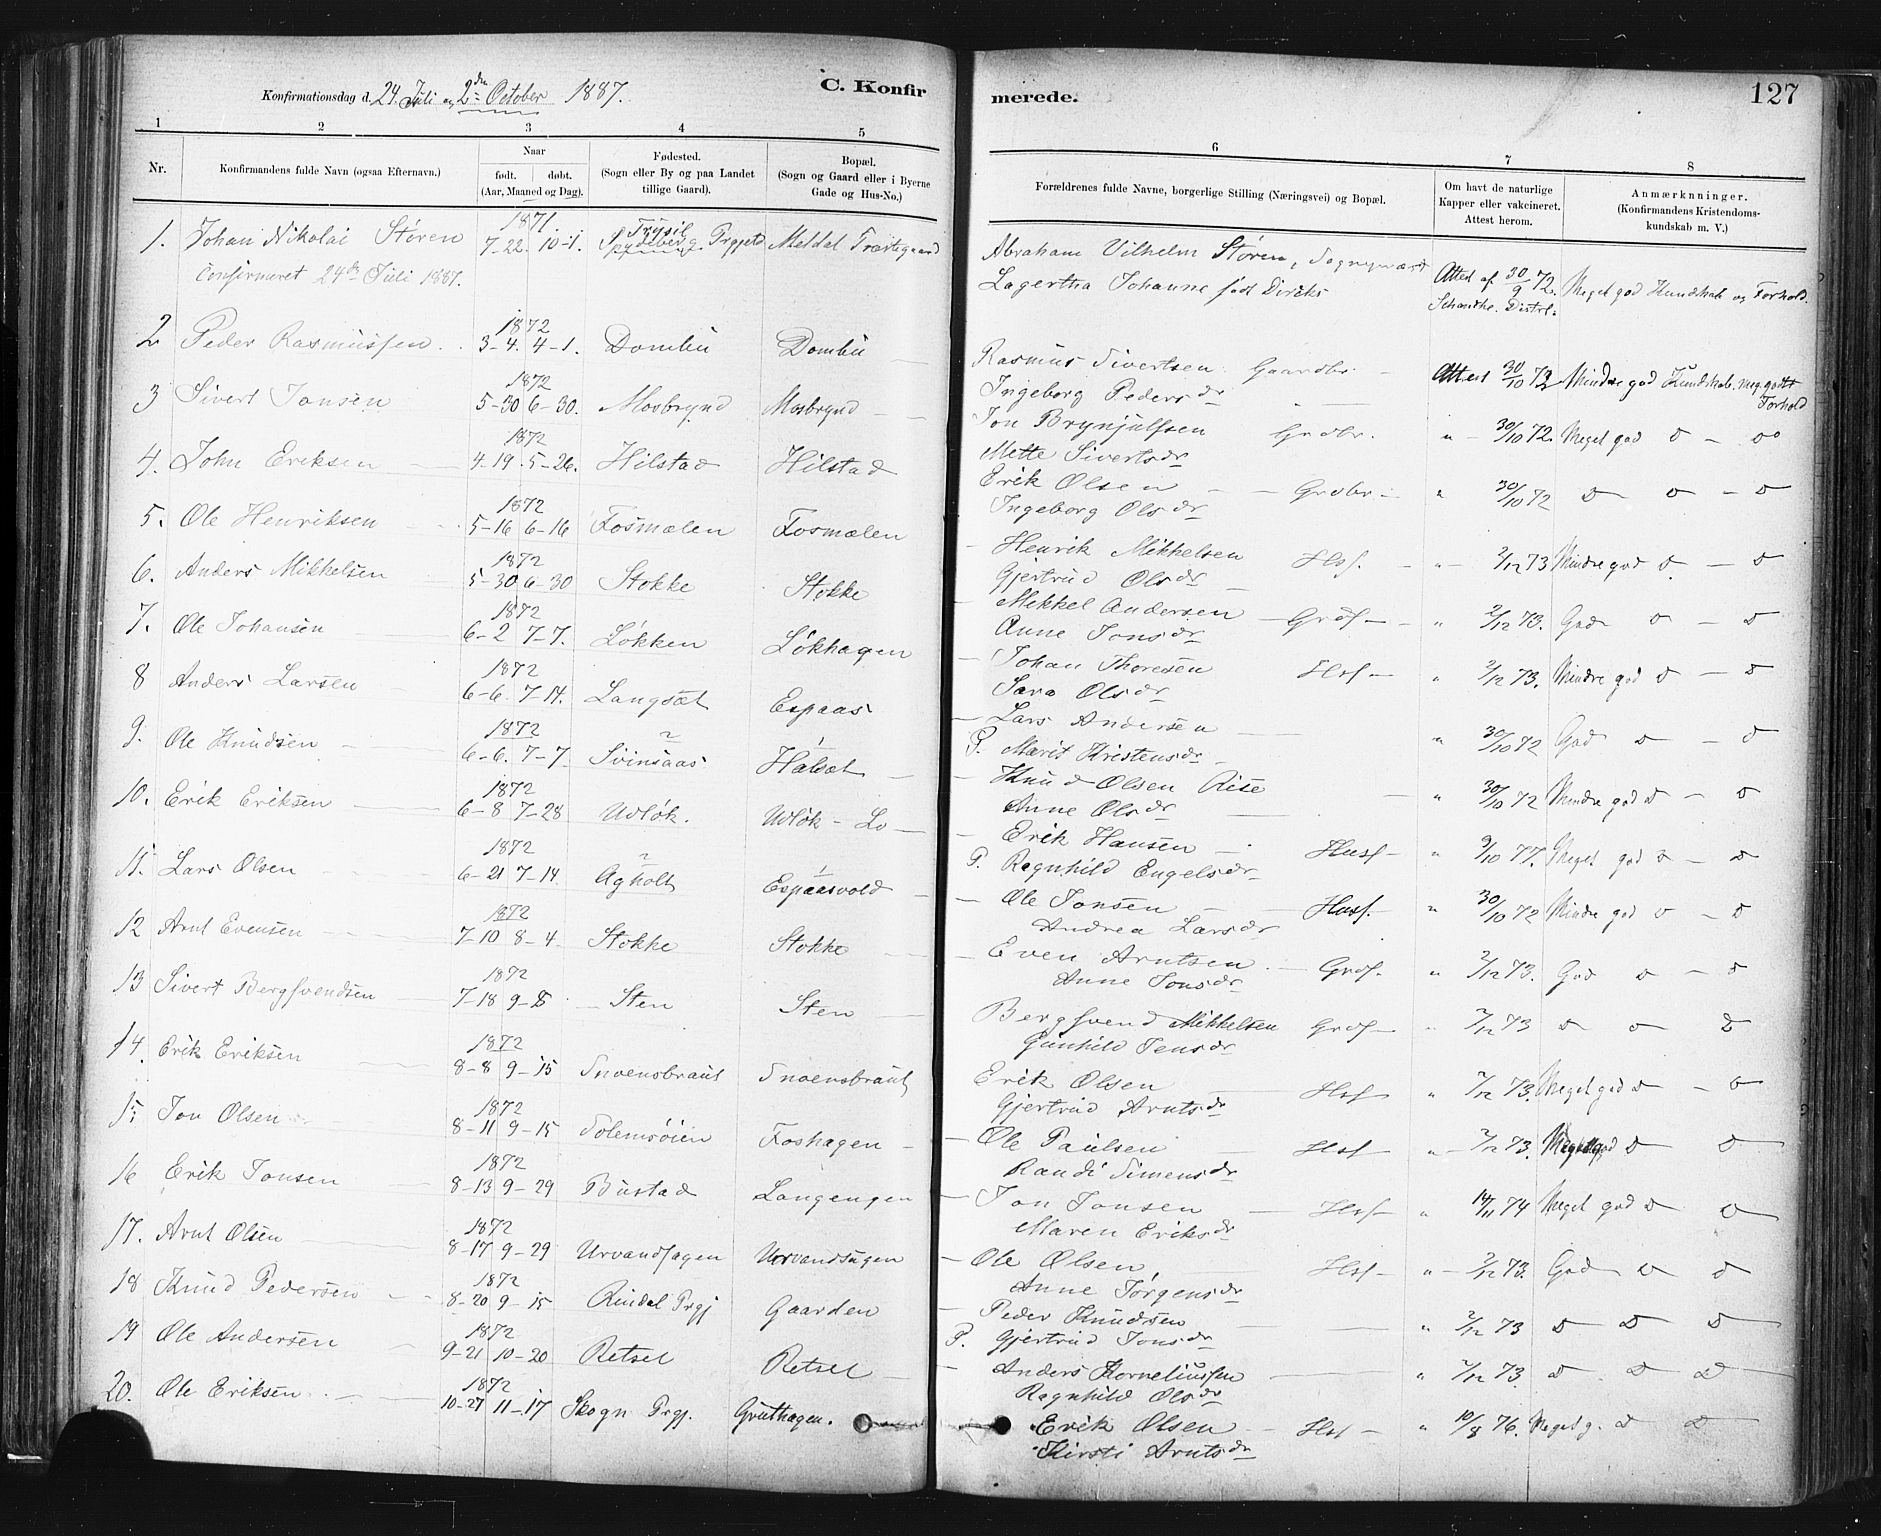 Konfirmationsdag d. 24. Juli og 2den October 1887.
C. Konfirmerede.
127
1 2 3 4 5 6 7 8
Nr.
Konfirmandens fulde Navn (ogsaa Efternavn.)
Naar
født. døbt.
(Aar, Maaned og Dag).
Fødested.
(Sogn eller By og paa Landet
tillige Gaard).
Bopæl.
(Sogn og Gaard eller i Byerne
Gade og Hus-No.)
Forældrenes fulde Navne, borgerlige Stilling (Næringsvei) og Bopæl.
Om havt de naturlige
Kapper eller vakcineret.
Attest herom.
Anmærknninger.
(Konfirmandens Kristendoms-
kundskab m. V.)
1871 Trysil
1. Johan Nikolai Støren 7-22. 10-1. Prgjeld Meldal Præstegaard Abraham Vilhelm Støren, Sognepræst
Confirmeret 24de Juli 1887. Lagertha Johanne født Dircks Attest af 30/9 72. Meget god Kundskab og Forhold.
Distrl.
1872
2 Peder Rasmussen. 3-4. 4-1. Dombu Dombu Rasmus Sivertsen Gaardbr. Attest 30/10 72 Mindre god Kundskab. meg. godt
Ingeborg Pedersdr Forhold
1872
3 Sivert Jonsen 5-30 6-30. Mosbrynd Mosbrynd Jon Brynjulfsen Grdbr. " 30/10 72. Meget god D - D
Mette Sivertsdr
1872
4. John Eriksen 4-19. 5-26. Hilstad Hilstad Erik Olsen Grdbr. " 30/10 72 D D - D
Ingeborg Olsdr
1872
5. Ole Henriksen 5-16 6-16 Fosmælen Fosmælen Henrik Mikkelsen Hsf. " 2/12 73 Mindre god D - D
Gjertrud Olsdr
1872
6. Anders Mikkelsen 5-30 6-30 Stokke Stokke Mikkel Andersen Grdf " 2/12 73. God D - D
Anne Jonsdr
1872
7. Ole Johansen 6-2 7-7. Løkken Løkhagen Johan Thoresen Hsf " 2/12 73. Mindre god D - D
Sara Olsdr
1872
8 Anders Larsen 6-6. 7-14. Langsæt Espaas Lars Andersen " 30/10 72 God D - D
P. Marit Kristensdr
1872
9. Ole Knudsen 6-6. 7-7. Svinsaas Halsæt Knud Olsen Rise " 30/10 72 Mindre god D - D
Anne Olsdr
1872
10. Erik Eriksen 6-8 7-28 Udløk. Udløk - Lo Erik Hansen Husf " 9/10 77. Meget god D - D
P. Ragnhild Engelsdr
1872
11. Lars Olsen 6-21 7-14. Agholt Espaasvold Ole Jonsen Husf. " 30/10 72 Mindre god D - D
Andrea Larsdr
1872
12 Arnt Evensen 7-10 8-4. Stokke Stokke Even Arntsen Grdf. " 2/12 73. God D - D
Anne Jonsdr
1872
13 Sivert Bergsvendsen 7-18 9-8 Sten Sten Bergsvend Mikkelsen Grdf " 2/12 73 D D D
Gunhild Jensdr
1872
14. Erik Eriksen 8-8 9-15 Snoensbraut Snoensbraut Erik Olsen Hsf " 2/12 73. Meget god D - D
Gjertrud Arntsdr
1872
15. Jon Olsen 8-11 9-15 Solemsøien Foshagen Ole Paulsen Hsf " 2/12 73. D D
Randi Simensdr
1872
16 Erik Jonsen 8-13 9-29 Bustad Langengen Jon Jonsen Hsf " 14/11 74 Meget god D D
Maren Eriksdr
1872
17. Arnt Olsen 8-17 9-29 Urvandhagen Urvandhagen Ole Olsen Hsf " 2/12 73. God D D
Anne Jørgensdr
1872
18 Knud Pedersen 8-20 9-15 Rindal Prgj Gaarden Peder Knudsen " 2/12 73 D D D
P. Gjertrud Jonsdr
1872
19 Ole Andersen 9-21 10-20 Retsel Retsel Anders Korneliussen " 2/12 73. D D D
Ragnhild Olsdr
1872
20. Ole Eriksen 10-27 11-17 Skogn Prgj. Gruthagen. Erik Olsen Hsf " 10/8 76. Meget g. D D
Kirsti Arntsdr